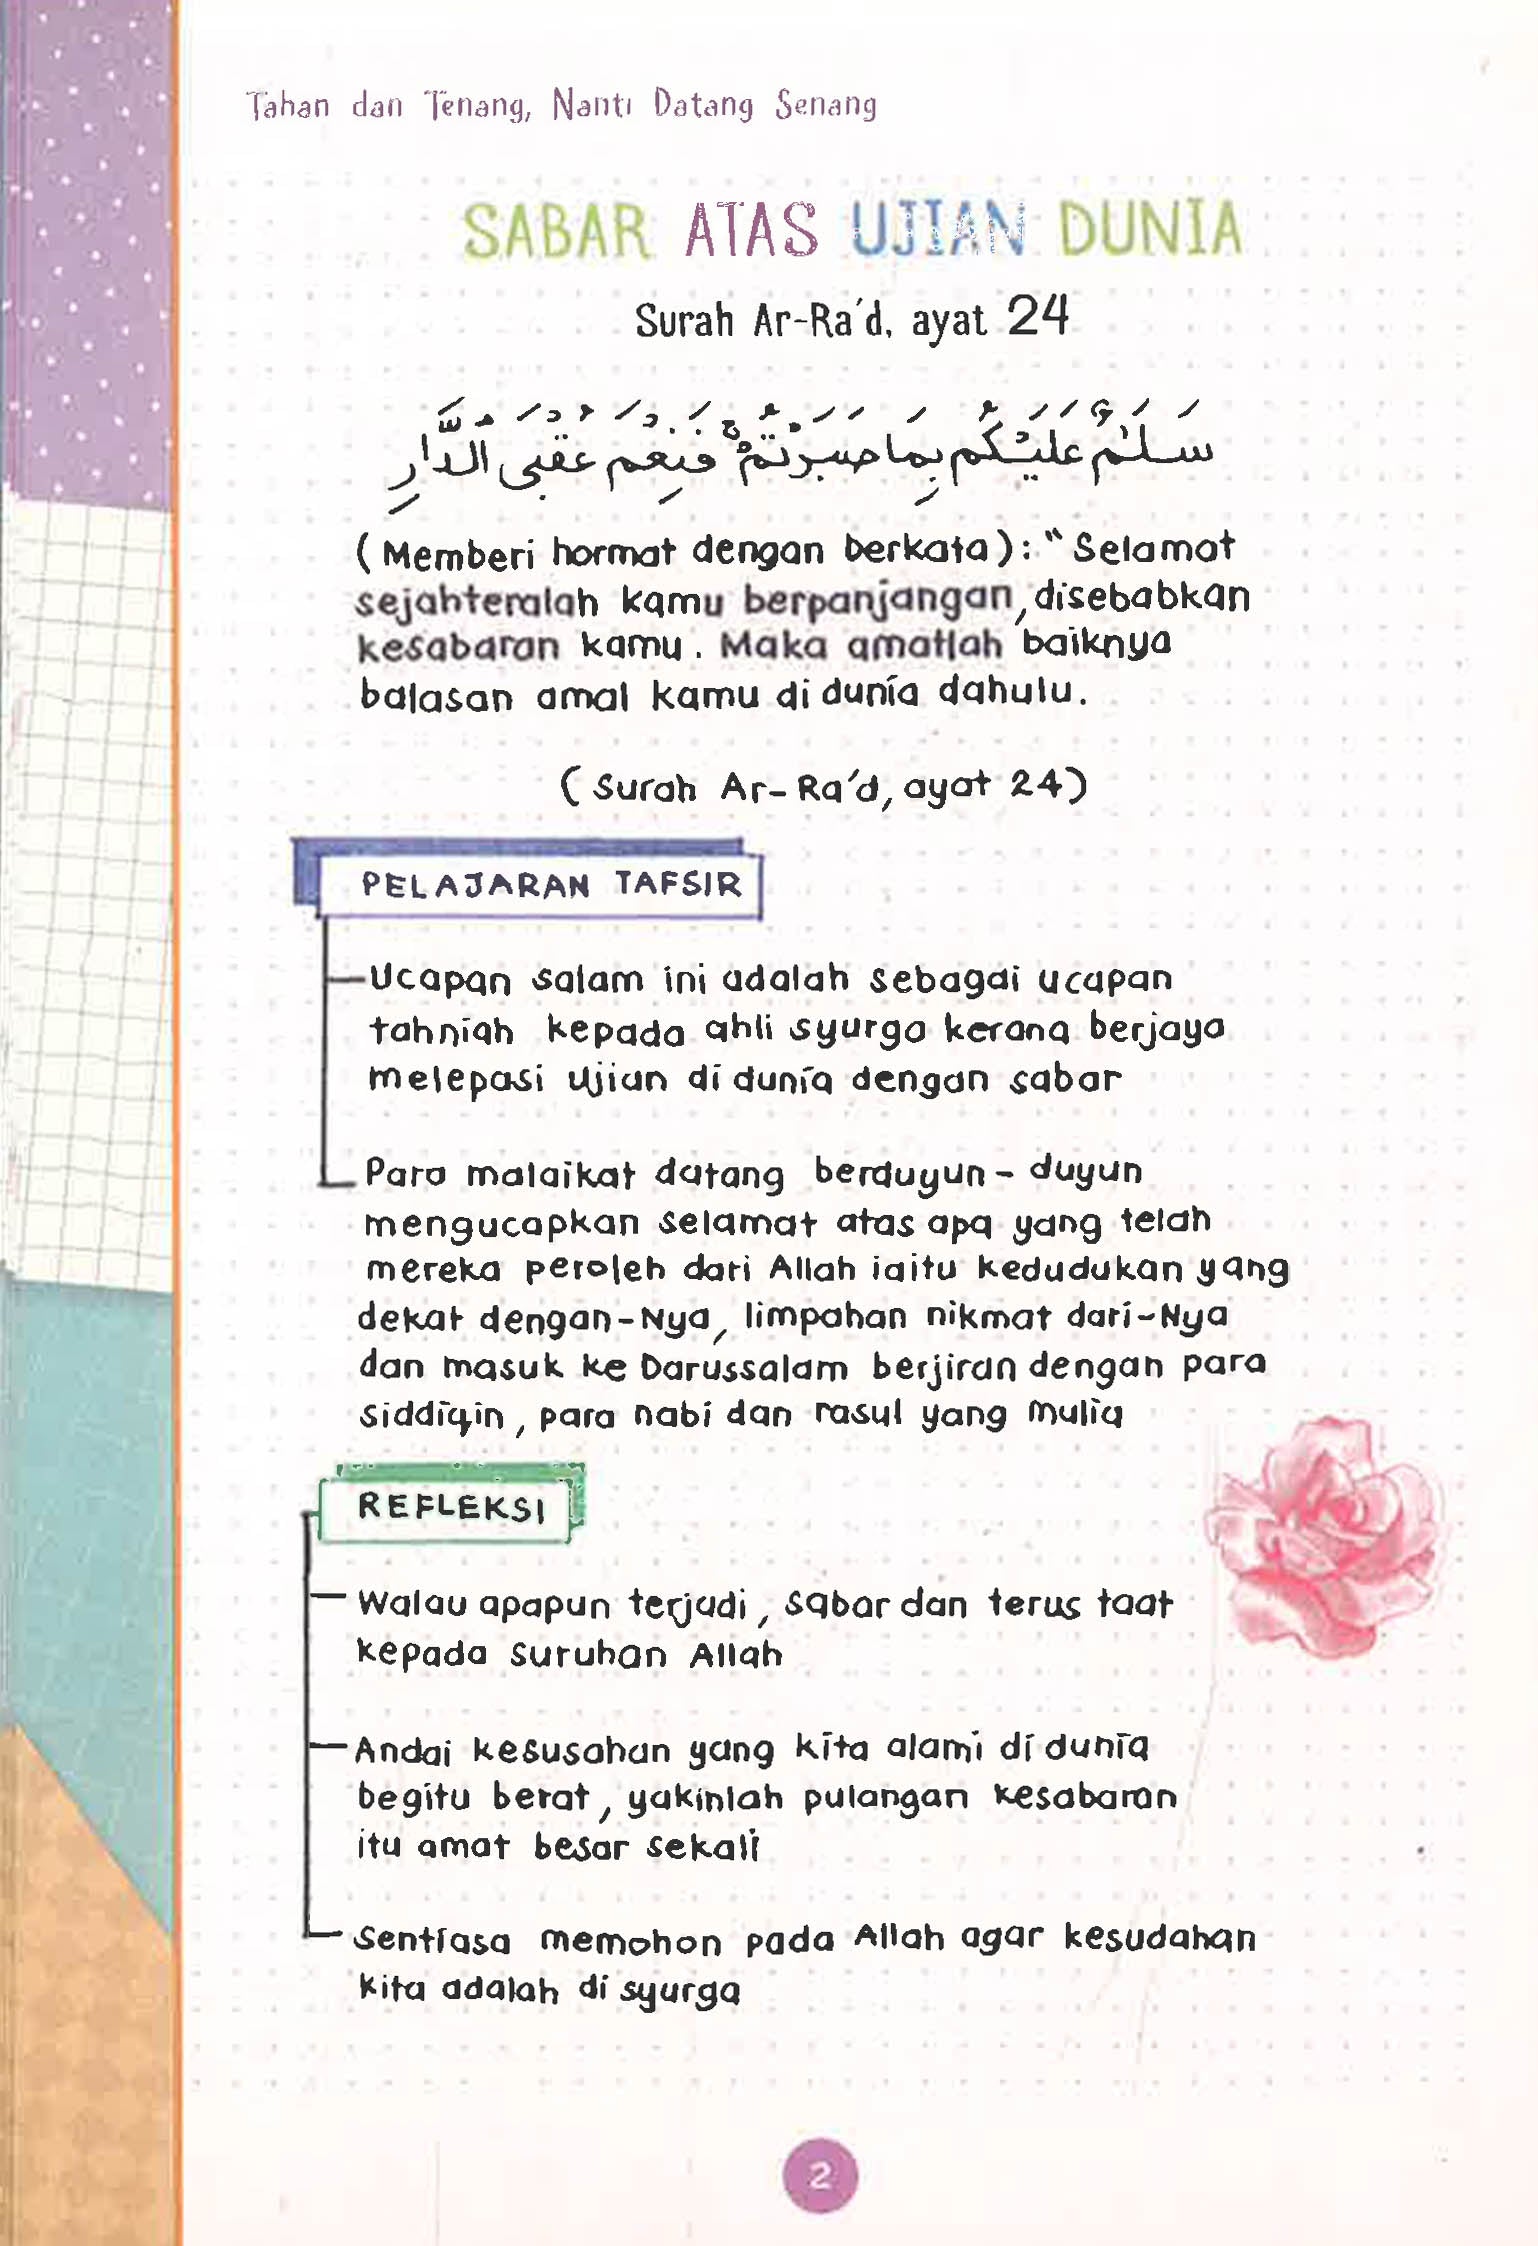 Tahan dan Tenang, Nanti Datang Senang
SABAR ATAS UJIAN DUNIA
Surah Ar-Ra'd, ayat 24
سَلَـٰمٌ عَلَيْكُم بِمَا صَبَرْتُمْ ۚ فَنِعْمَ عُقْبَى الدَّارِ
(Memberi hormat dengan berkata): "Selamat
sejahteralah kamu berpanjangan, disebabkan
kesabaran kamu. Maka amatlah baiknya
balasan amal kamu di dunia dahulu.
(Surah Ar-Ra'd, ayat 24)
PELAJARAN TAFSIR
Ucapan salam ini adalah sebagai ucapan
tahniah kepada ahli syurga kerana berjaya
melepasi ujian di dunia dengan sabar
Para malaikat datang berduyun-duyun
mengucapkan selamat atas apa yang telah
mereka peroleh dari Allah iaitu kedudukan yang
dekat dengan-Nya, limpahan nikmat dari-Nya
dan masuk ke Darussalam berjiran dengan para
siddiqin, para nabi dan rasul yang mulia
REFLEKSI
Walau apapun terjadi, sabar dan terus taat
kepada suruhan Allah
Andai kesusahan yang kita alami di dunia
begitu berat, yakinlah pulangan kesabaran
itu amat besar sekali
Sentiasa memohon pada Allah agar kesudahan
kita adalah di syurga
2